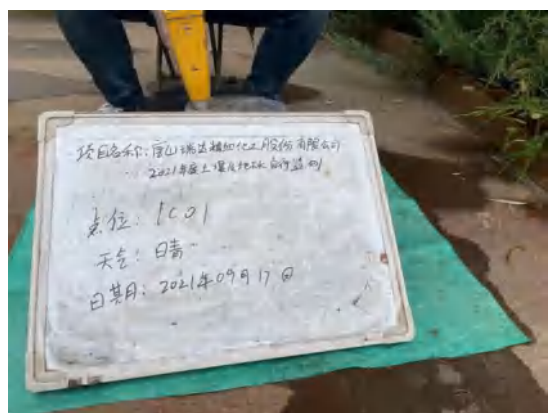 项目名称：唐山瑞达精细化工股份有限公司
2021年度土壤及地下水自行监测
点位：1C01
天气：日青
日期：2021年09月17日